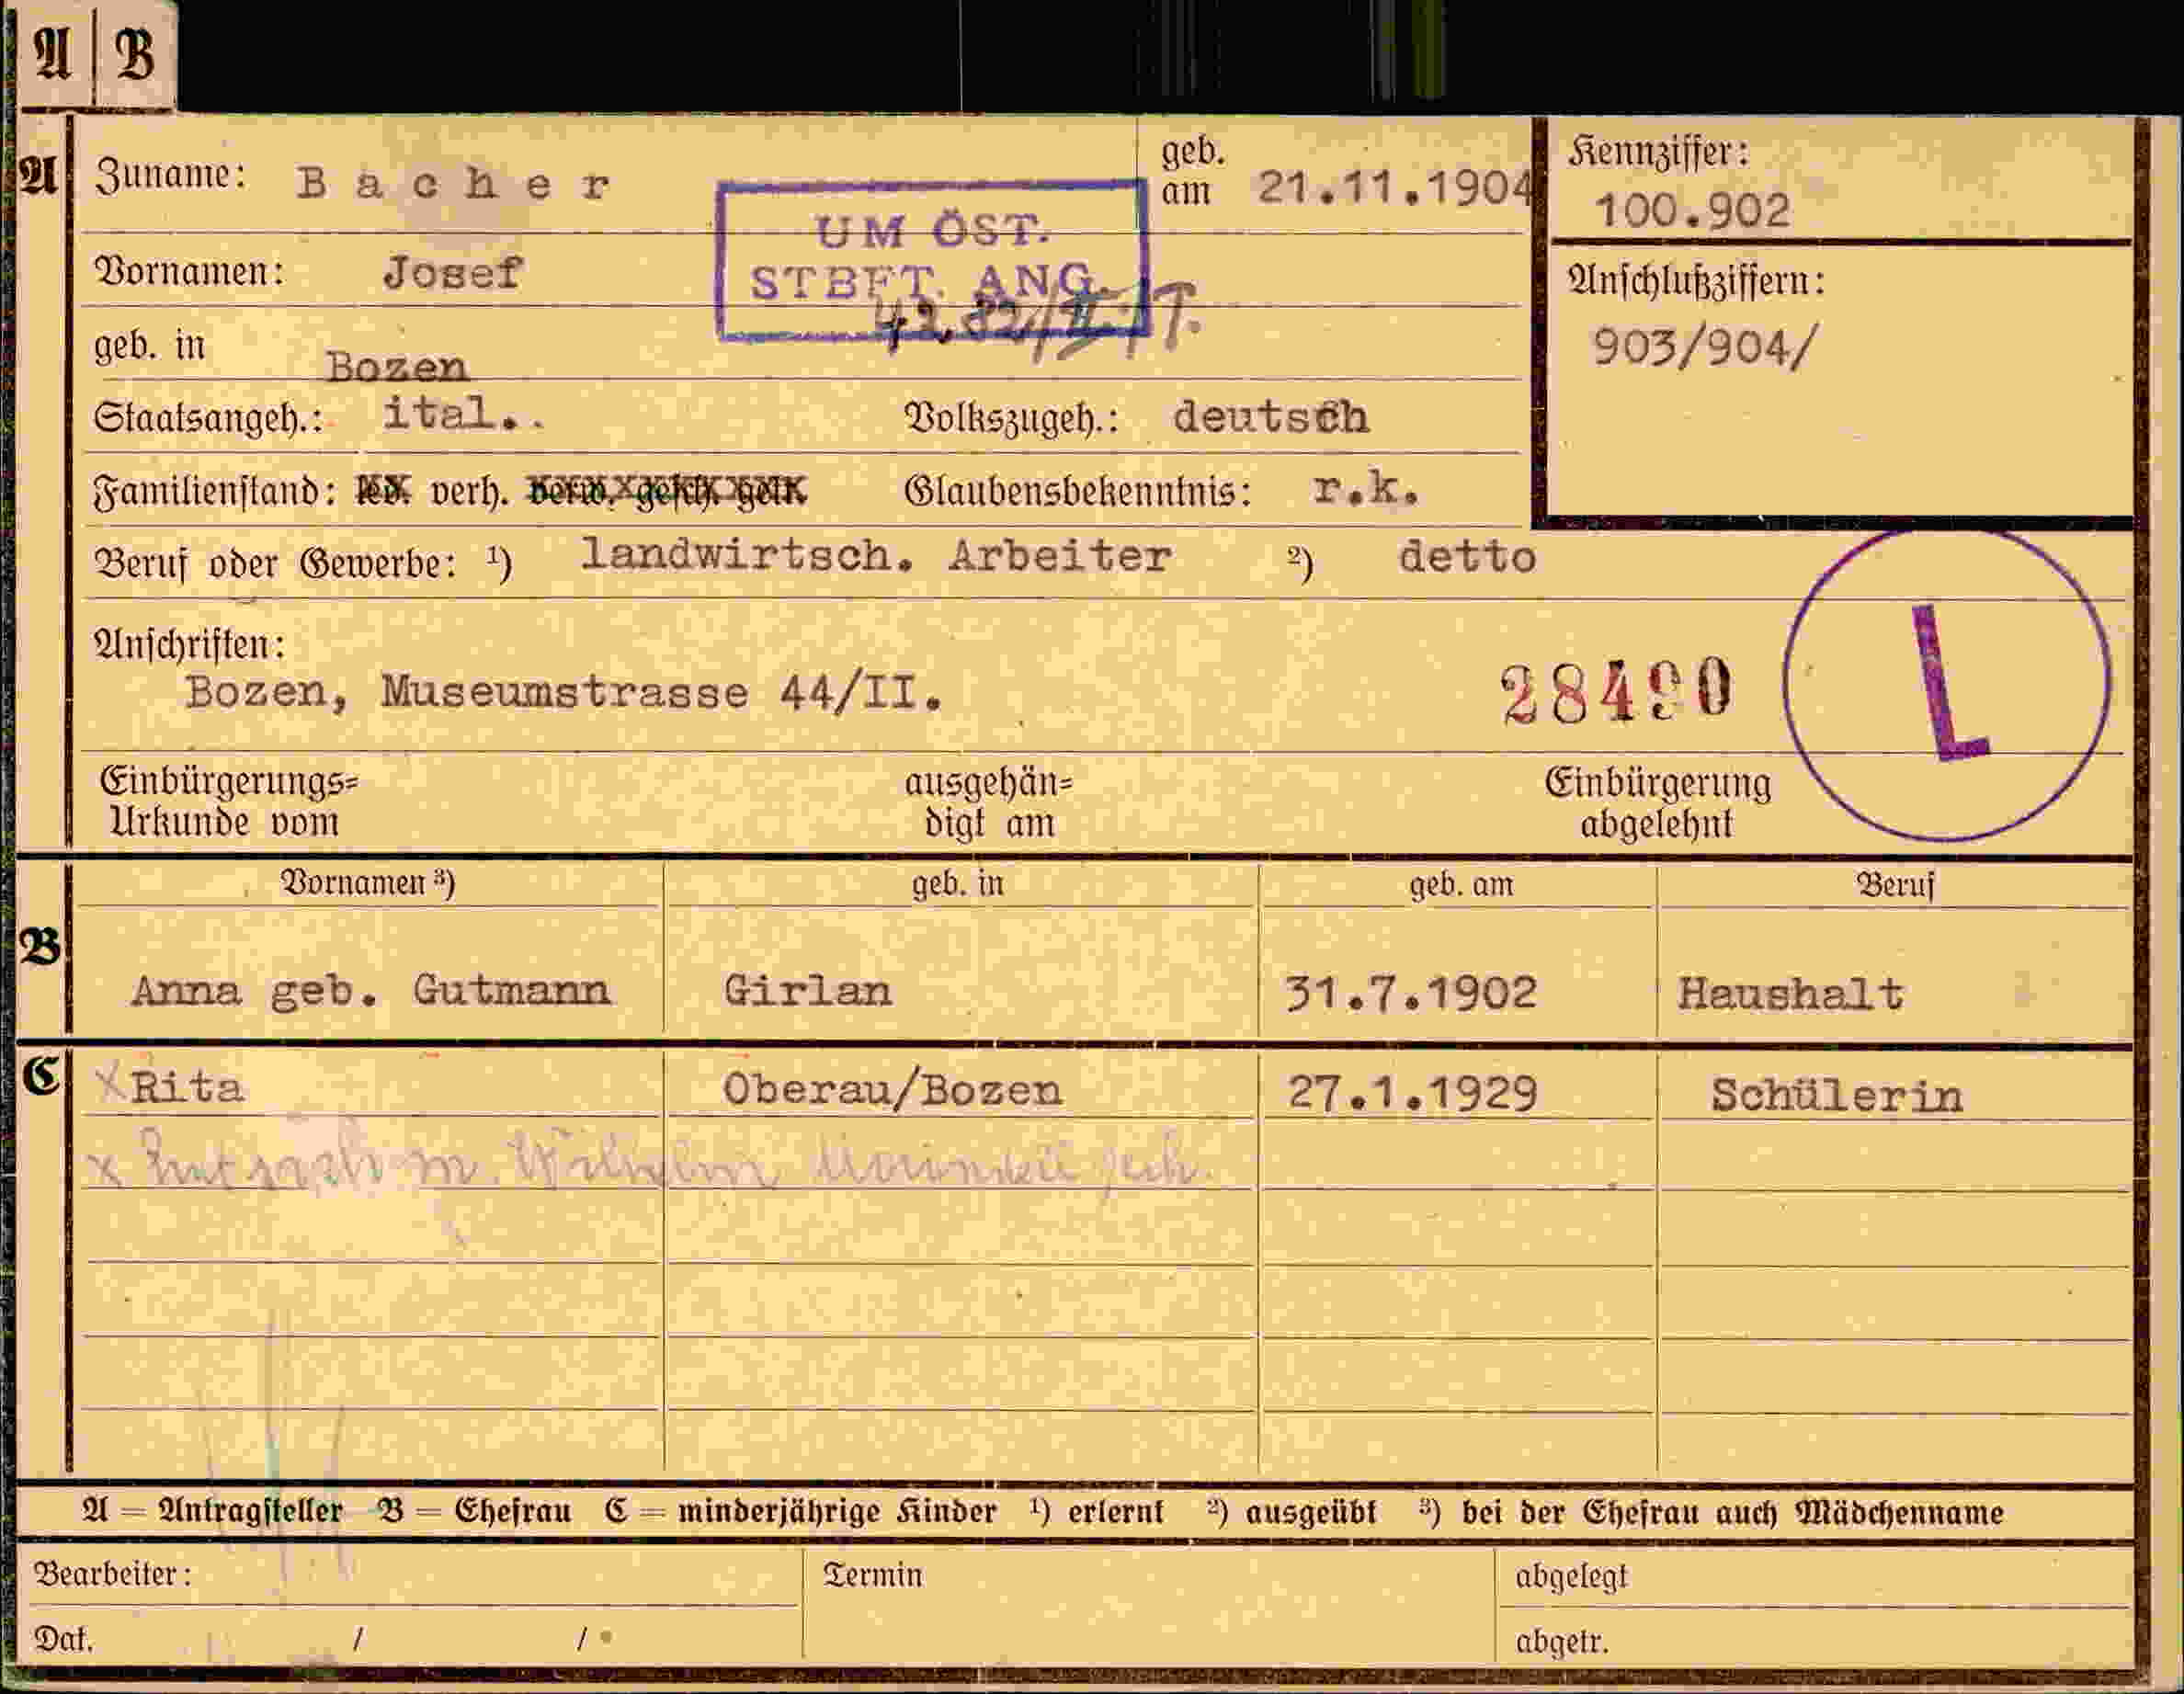 A B
A
Zuname: Bacher
geb. am 21.11.1904
Kennziffer:
100.902
UM ÖST.
STBFT. ANG.
Vornamen: Josef
Anschlußziffern:
903/904/
geb. in Bozen
Staatsangeh.: ital.. Volkszugeh.: deutsch
Familienstand: led. verh. verw. gesch. getr. Glaubensbekenntnis: r.k.
Beruf oder Gewerbe: ¹) landwirtsch. Arbeiter ²) detto
Anschriften:
Bozen, Museumstrasse 44/II.
28490
L
Einbürgerungs=
Urkunde vom
ausgehän=
digt am
Einbürgerung
abgelehnt
Vornamen ³) geb. in geb. am Beruf
B
Anna geb. Gutmann Girlan 31.7.1902 Haushalt
C
x Rita Oberau/Bozen 27.1.1929 Schülerin
x hat sich m. Wilhelm
A = Antragsteller B = Ehefrau C = minderjährige Kinder ¹) erlernt ²) ausgeübt ³) bei der Ehefrau auch Mädchenname
Bearbeiter: Termin abgelegt
Dat. / / abgetr.